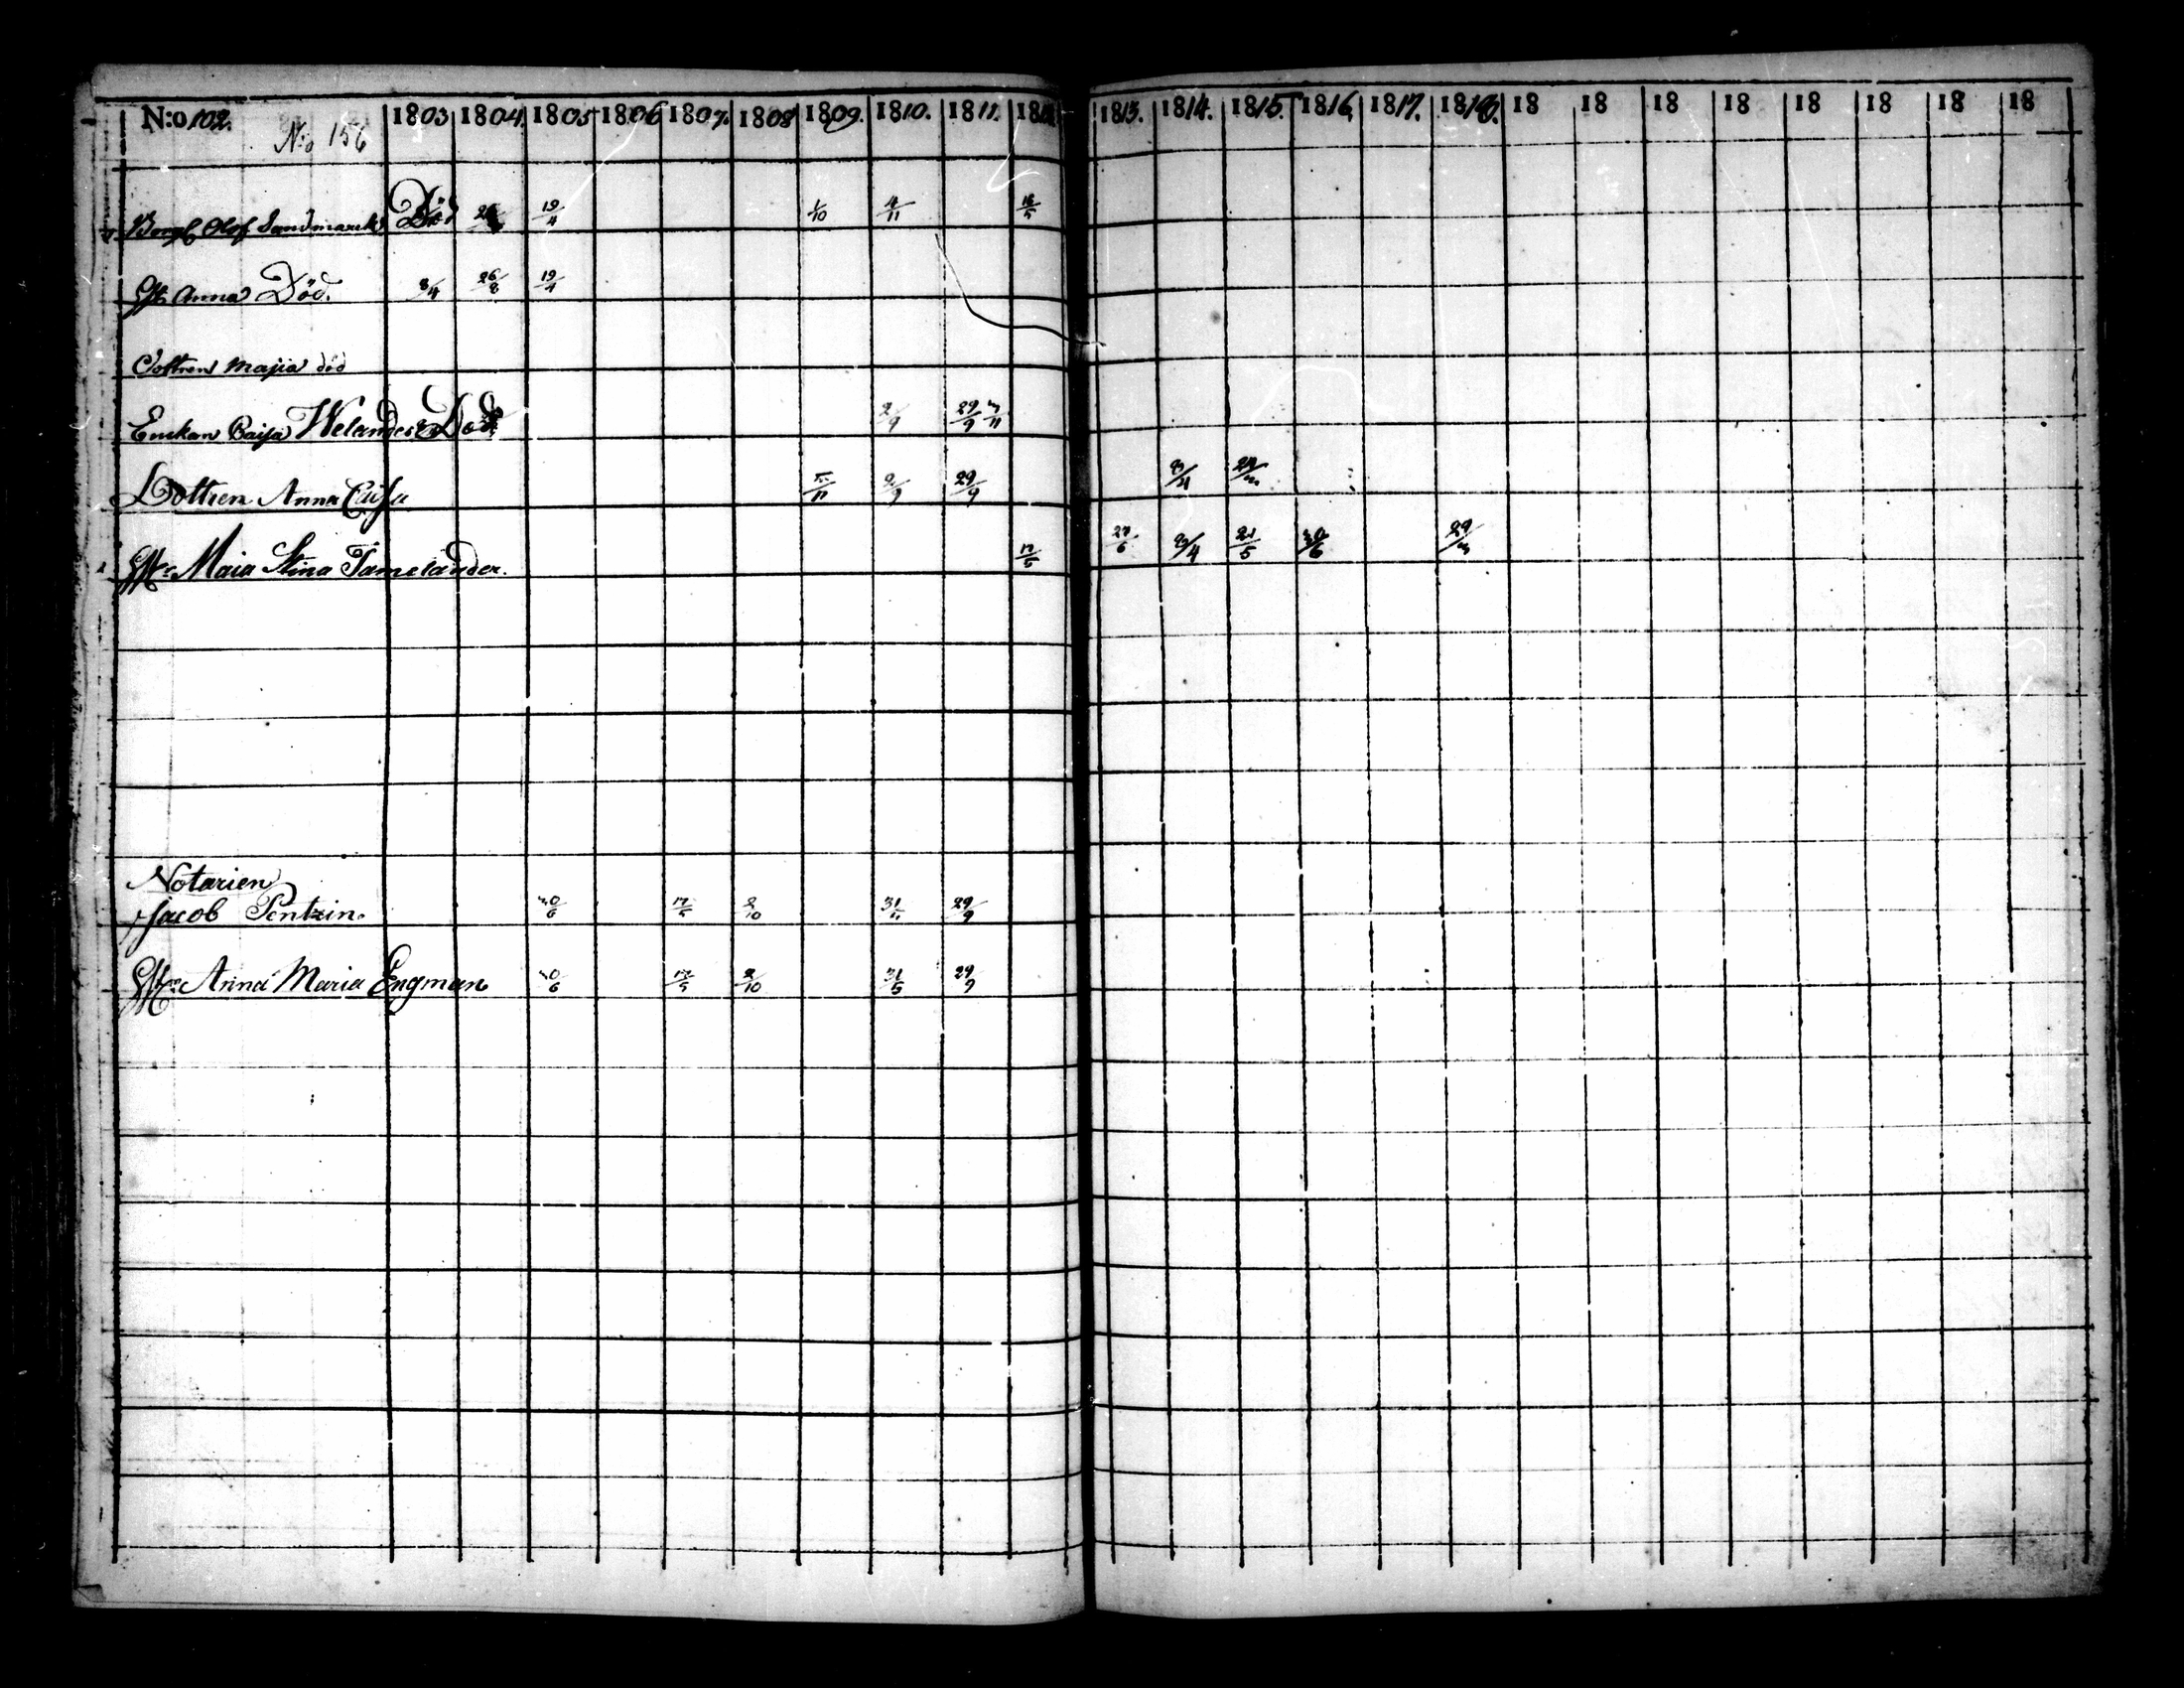 N:o 102. 1803 1804. 1805 1806 1807. 1808 1809. 1810. 1811. 1812 1813. 1814. 1815. 1816. 1817. 1818. 18 18 18 18 18 18 18 18
N:o 156
Borg Olof Sandmarck Död 19/4 1/10 4/11 16/5
H: Anna Död. 3/4 26/8 19/4
Dottren Majia död
Enckan Caisa Welander Död 2/9 29/9 3/11
Dottren Anna Caisa 2/9 29/9
H:u Maia Stina Tamelander. 17/5 27/6 21/5 30/6 29/3
Notarien
Jacob Pentzin. 30/6 17/5 2/10 29/9
H:u Anna Maria Engman 30/6 17/5 2/10 31/5 29/9